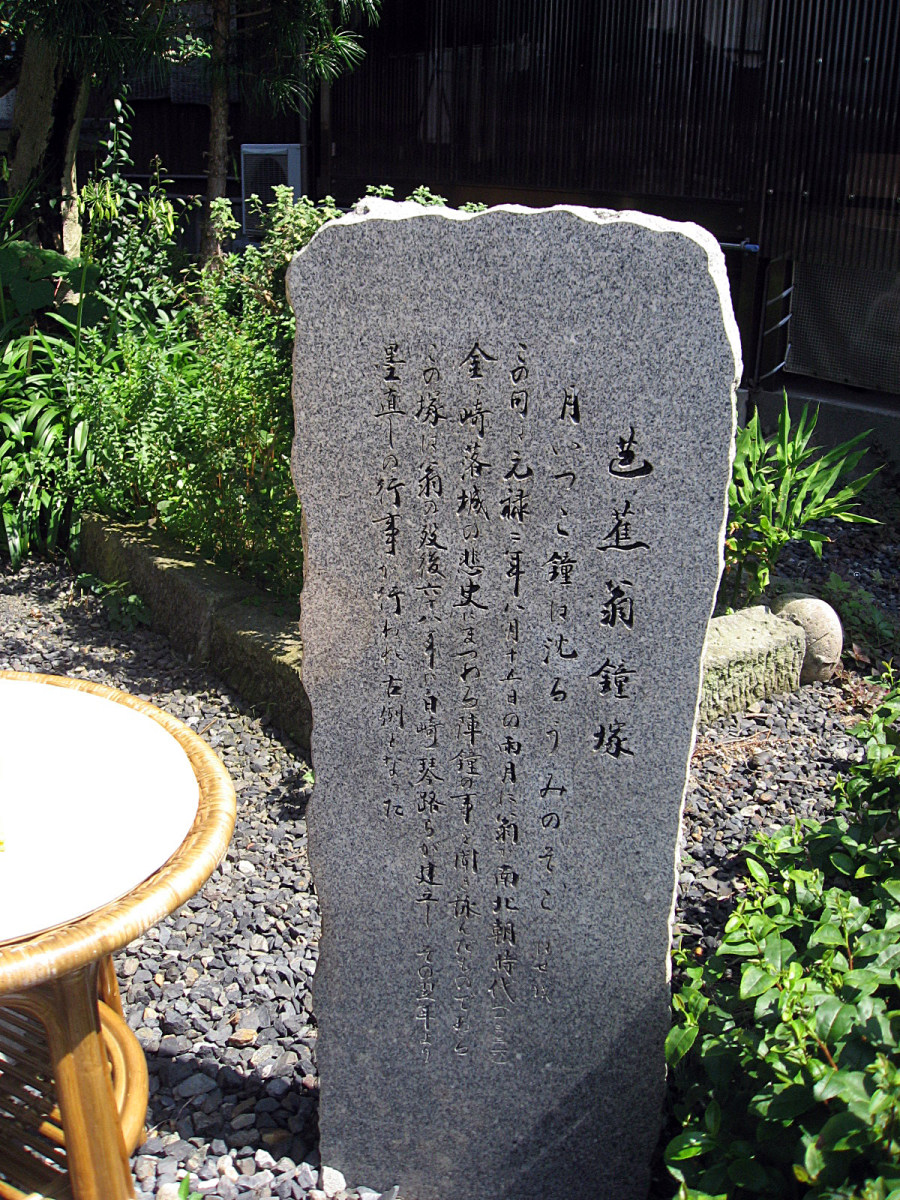 芭蕉翁鐘塚
月いつこ鐘は沈るうみのそこ はせを
この句は元禄二年八月十五日の雨月に翁が南北朝時代
金ヶ崎落城の悲史にまつわる陣鐘の事を聞き詠んだものである
この塚は翁の歿後六十八年に白崎琴路らが建立し その翌年より
墨直しの行事が行われ古例となった